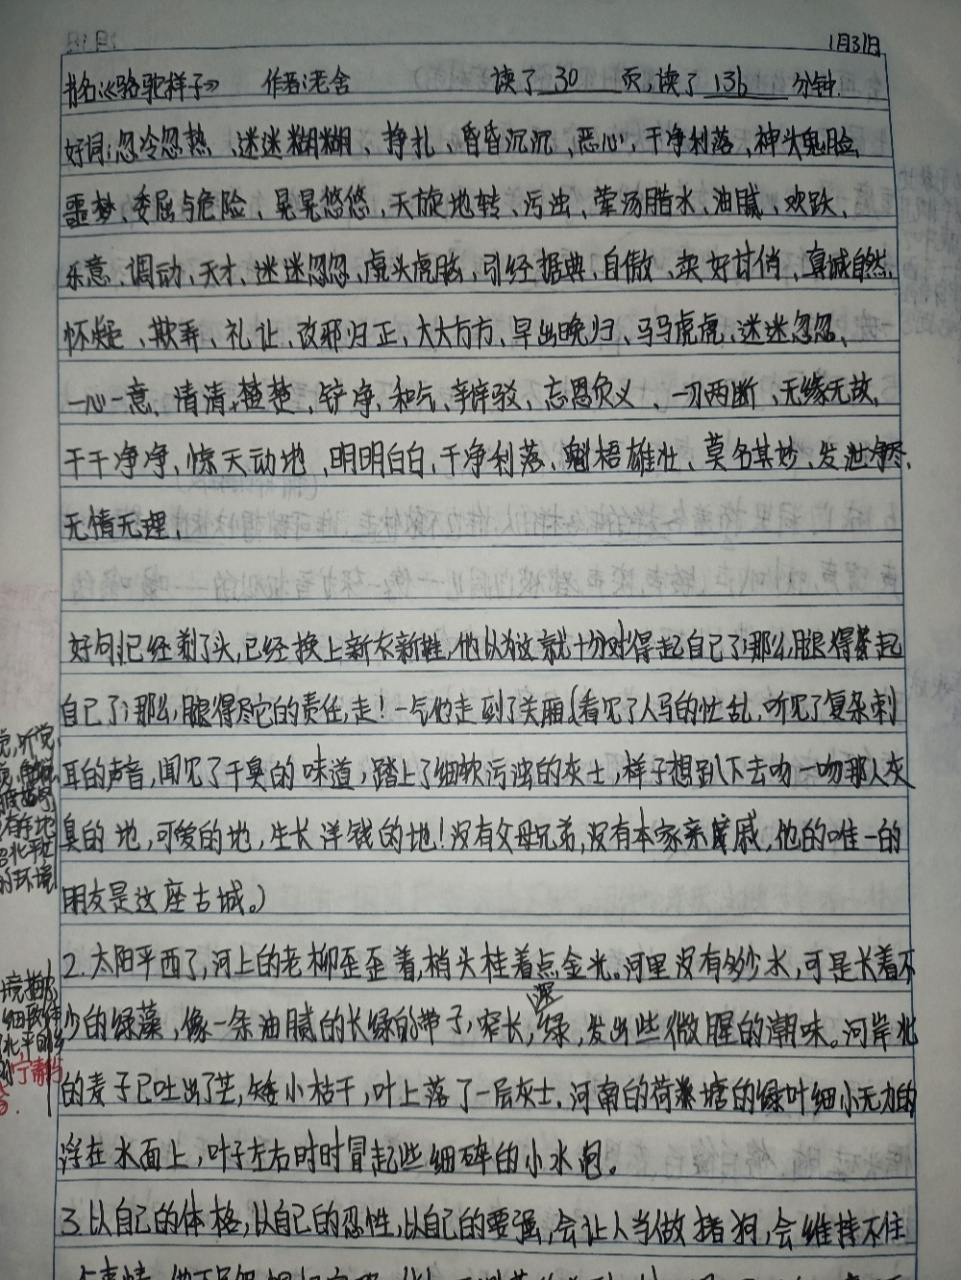 1月31日
书名:《骆驼祥子》 作者:老舍 读了 30 页,读了 136 分钟.
好词:忽冷忽热、迷迷糊糊、挣扎、昏昏沉沉、恶心、干净利落、神头鬼脸、
噩梦、委屈与危险、晃晃悠悠、天旋地转、污浊、荤汤腊水、油腻、欢跃、
乐意、调动、天才、迷迷忽忽、虎头虎脑、引经据典、自傲、卖好讨俏、真诚自然、
怀疑、欺弄、礼让、改邪归正、大大方方、早出晚归、马马虎虎、迷迷忽忽、
一心一意、清清楚楚、铲净、和气、辩驳、忘恩负义、一刀两断、无缘无故、
干干净净、惊天动地、明明白白、干净利落、魁梧雄壮、莫名其妙、发泄净尽、
无情无理、
好句:1已经剃了头,已经换上新衣新鞋,他以为这就十分对得起自己了;那么,腿得
自己了;那么,腿得尽它的责任,走!一气他走到了关厢。(看见了人马的忙乱,听见了复杂刺
耳的声音,闻见了干臭的味道,踏上了细软污浊的灰土,祥子想趴下去吻一吻那个灰
臭的地,可爱的地,生长洋钱的地!没有父母兄弟,没有本家亲戚,他的唯一的
朋友是这座古城。)
2.太阳平西了,河上的老柳歪歪着,梢头挂着点金光。河里没有多少水,可是长着不
少的绿藻,像一条油腻的长绿的带子,窄长,深绿,发出些微腥的潮味。河岸北
的麦子已吐出了芒,矮小枯干,叶上落了一层灰土。河南的荷塘的绿叶细小无力的
浮在水面上,叶子左右时时冒起些细碎的小水泡。
3.以自己的体格,以自己的忍性,以自己的要强,会让人当做猪狗,会维持不住